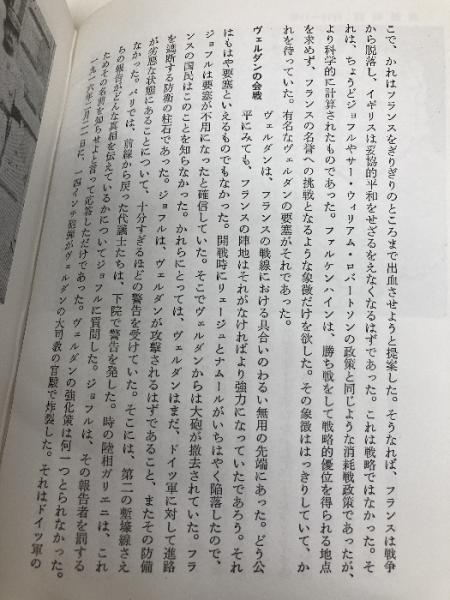 こで、かれはフランスをぎりぎりのところまで出血させようと提案した。そうなれば、フランスは戦争
から脱落し、イギリスは妥協的平和をせざるをえなくなるはずであった。これは戦略ではなかった。そ
れは、ちょうどジョフルやサー・ウィリアム・ロバートソンの政策と同じような消耗戦政策であったが、
より科学的に計算されたものであった。ファルケンハインは、勝ち戦をして戦略的優位を得られる地点
を求めず、フランスの名誉への挑戦となるような象徴だけを欲した。その象徴ははっきりしていて、か
れを待っていた。有名なヴェルダンの要塞がそれであった。
ヴェルダンの会戦
ヴェルダンは、フランスの戦線における具合いのわるい無用の先端にあった。どう公
平にみても、フランスの陣地はそれがなければより強力になっていたであろう。それ
はもはや要塞といえるものでもなかった。開戦時にリエージュとナムールがいちはやく陥落したので、
ジョフルは要塞が不用になったと確信していた。そこでヴェルダンからは大砲が撤去されていた。フラ
ンスの国民はこのことを知らなかった。かれらにとっては、ヴェルダンはまだ、ドイツ軍に対して進路
を遮断する防衛の柱石であった。ジョフルは、ヴェルダンが攻撃されるはずであること、またその防備
が劣悪な状態にあることについて、十分すぎるほどの警告を受けていた。そこには、第二の塹壕線さえ
なかった。パリでは、前線から戻った代議士たちは、下院で警告を発した。時の陸相ガリエニは、これ
らの報告がどんな真相を伝えているかについてジョフルに質問した。ジョフルは、その報告者を罰する
ためその名前を知らせよと言って応答しただけであった。ヴェルダンの強化策は何一つとられなかった。
一九一六年二月二一日に、一四インチ砲弾がヴェルダンの大司教の官殿で炸裂した。それはドイツ軍の